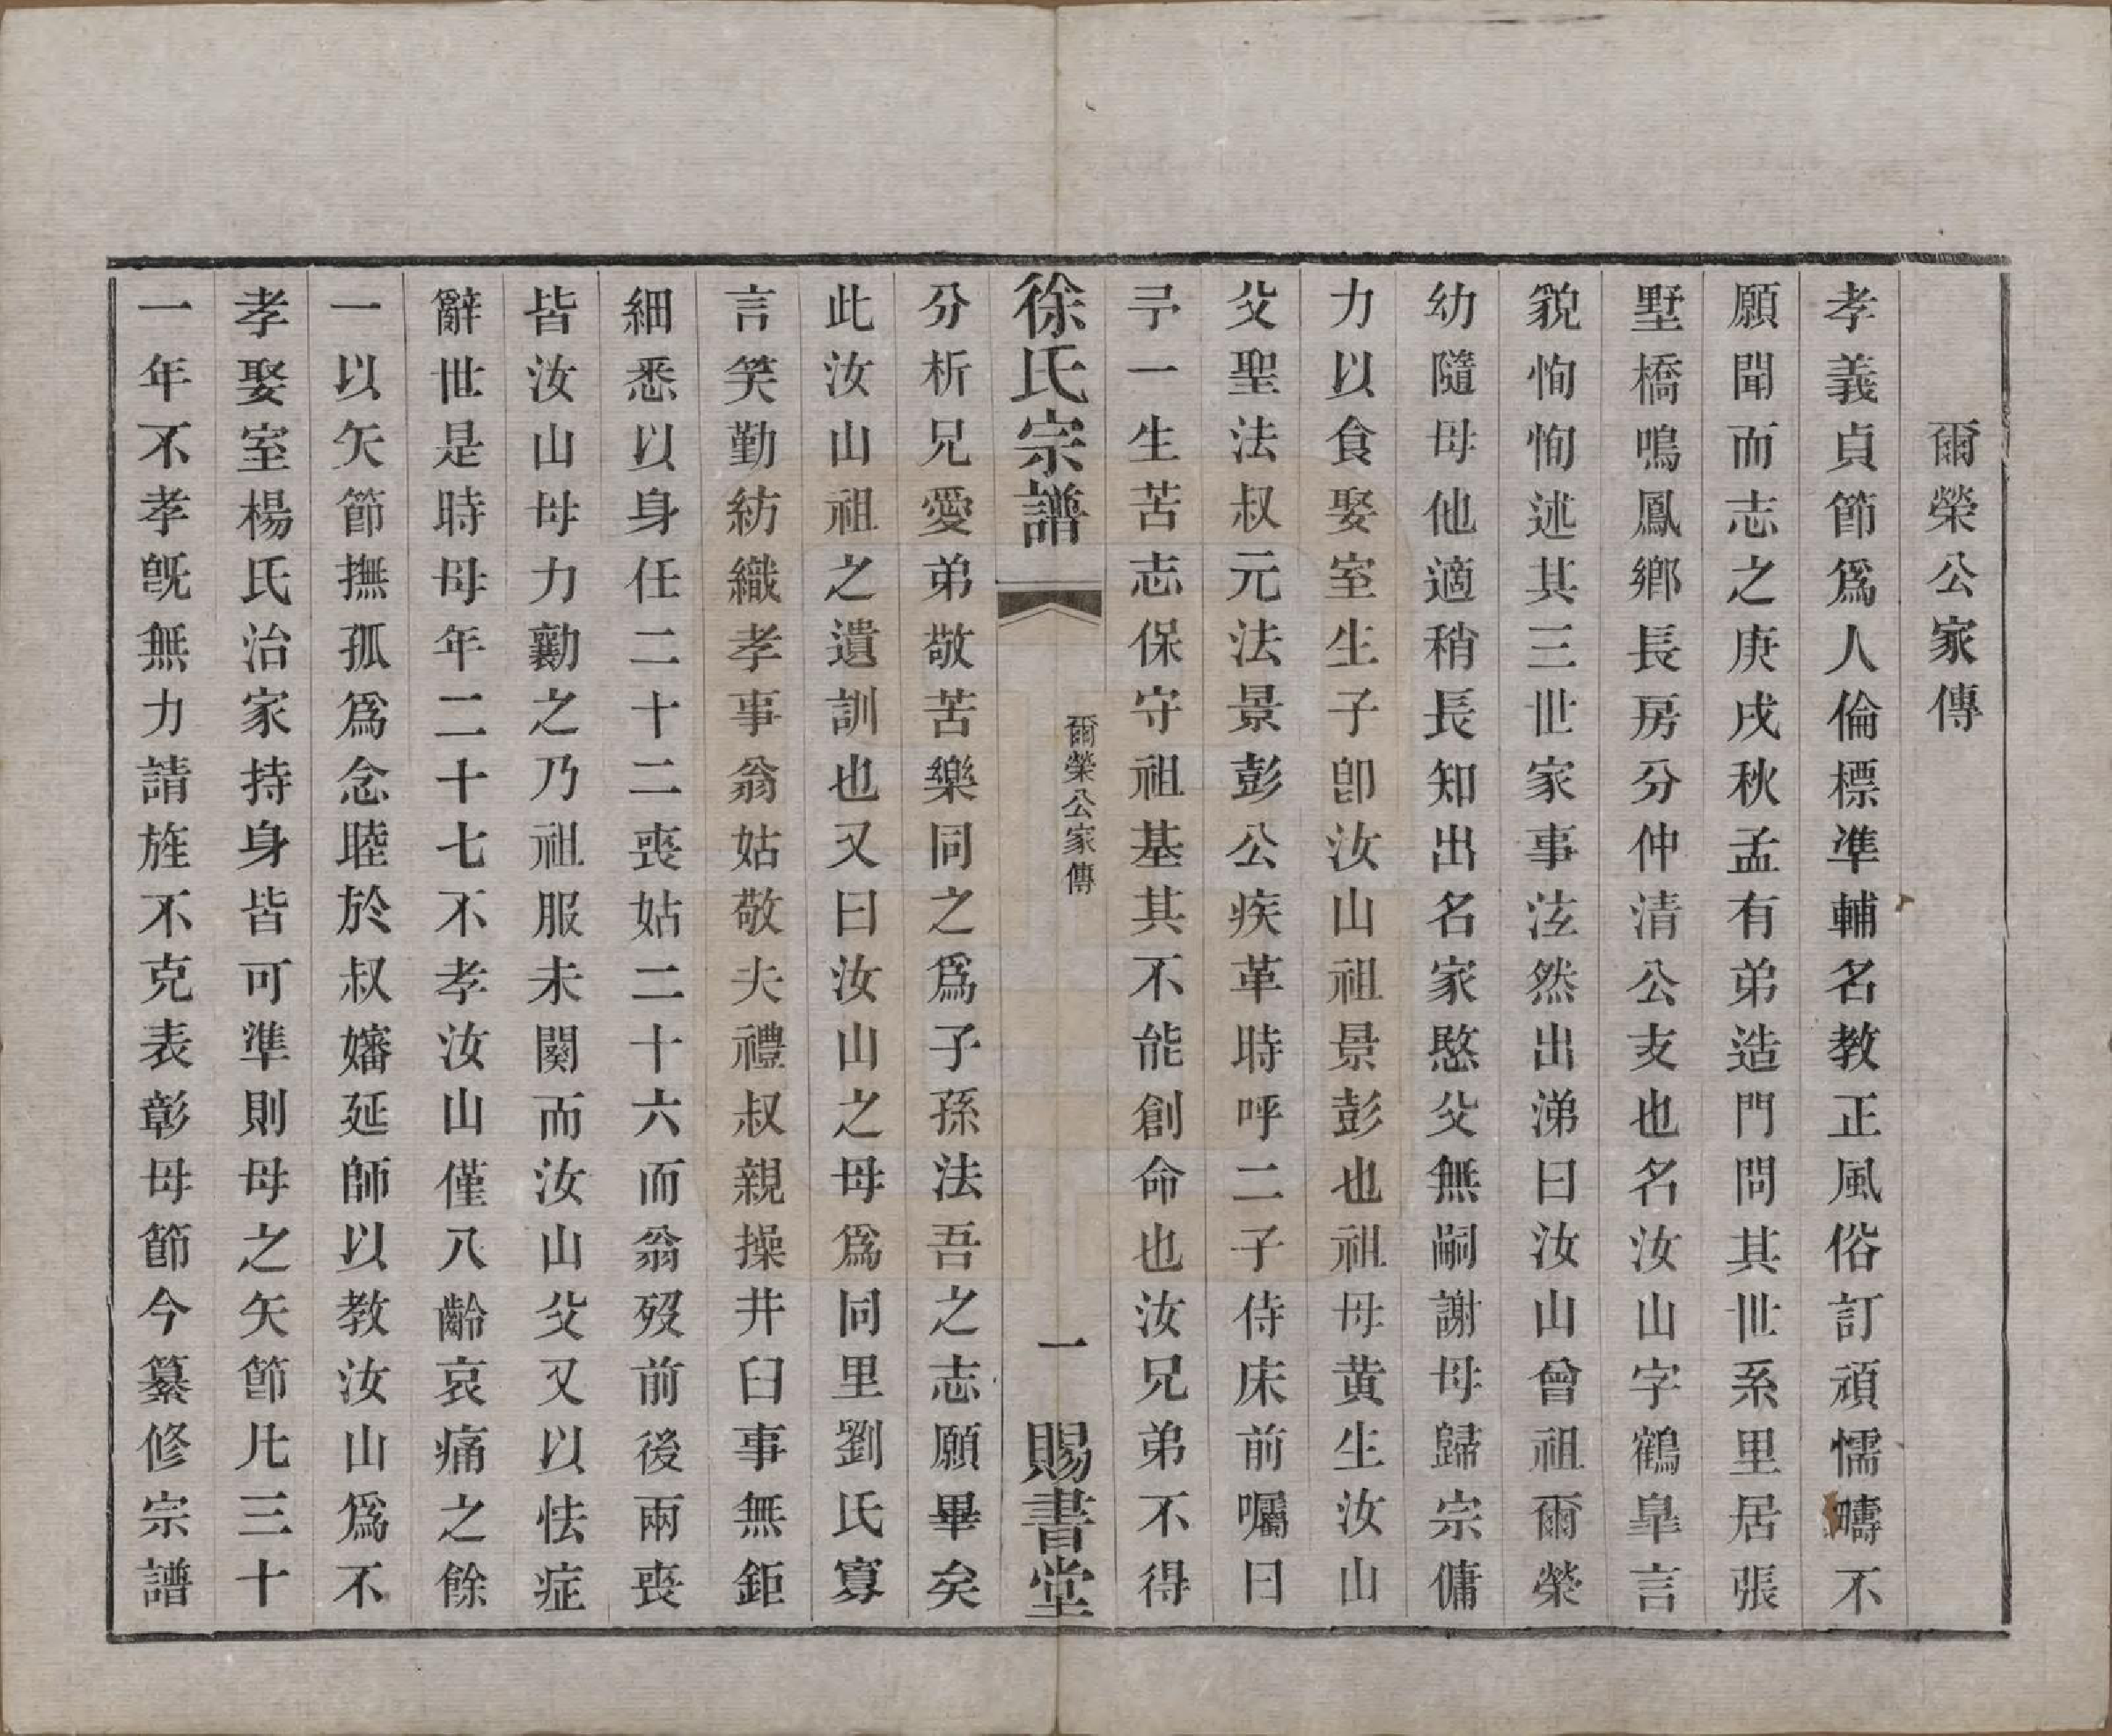 爾榮公家傳
孝義貞節爲人倫標準輔名教正風俗訂頑懦疇不
願聞而志之庚戌秋孟有弟造門問其世系里居張
墅橋鳴鳳鄉長房分仲清公支也名汝山字鶴皐言
貌恂恂述其三世家事泫然出涕曰汝山曾祖爾榮
幼隨母他適稍長知出名家愍父無嗣謝母歸宗傭
力以食娶室生子卽汝山祖景彭也祖母黄生汝山
父聖法叔元法景彭公疾革時呼二子侍床前囑曰
予一生苦志保守祖基其不能創命也汝兄弟不得
徐氏宗譜
爾榮公家傳
一
賜書堂
分析兄愛弟敬苦樂同之爲子孫法吾之志願畢矣
此汝山祖之遺訓也又曰汝山之母爲同里劉氏寡
言笑勤紡織孝事翁姑敬夫禮叔親操井臼事無鉅
細悉以身任二十二喪姑二十六而翁歿前後兩喪
皆汝山母力勷之乃祖服未闋而汝山父又以怯症
辭世是時母年二十七不孝汝山僅八齡哀痛之餘
一以矢節撫孤爲念睦於叔嬸延師以教汝山爲不
孝娶室楊氏治家持身皆可準則母之矢節凡三十
一年不孝旣無力請旌不克表彰母節今纂修宗譜